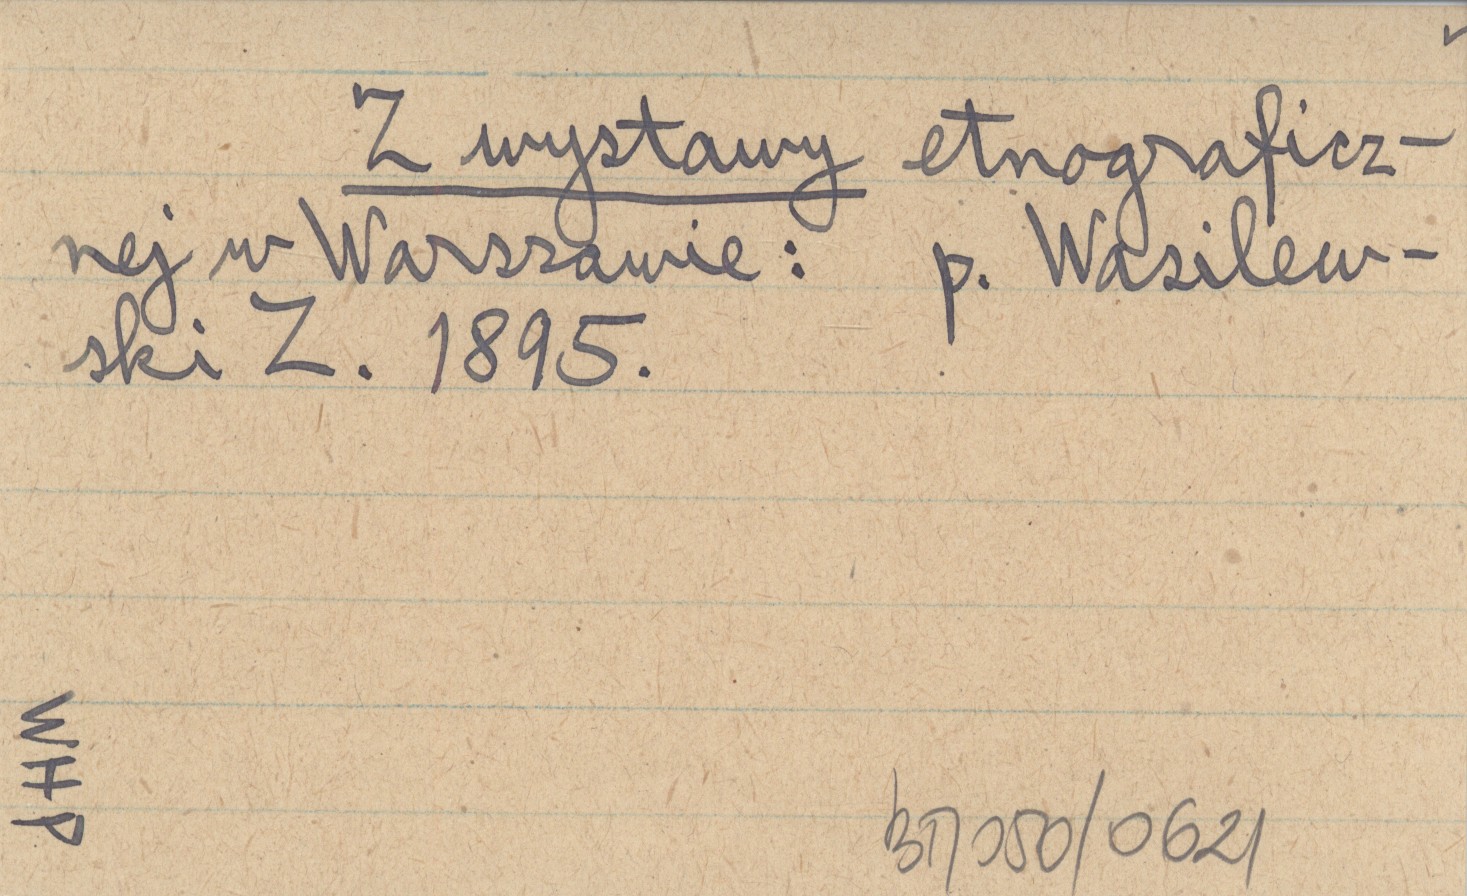 Z wystawy etnograficz-
nej w Warszawie: p. Wasilew-
ski Z. 1895.
WHP
/0621